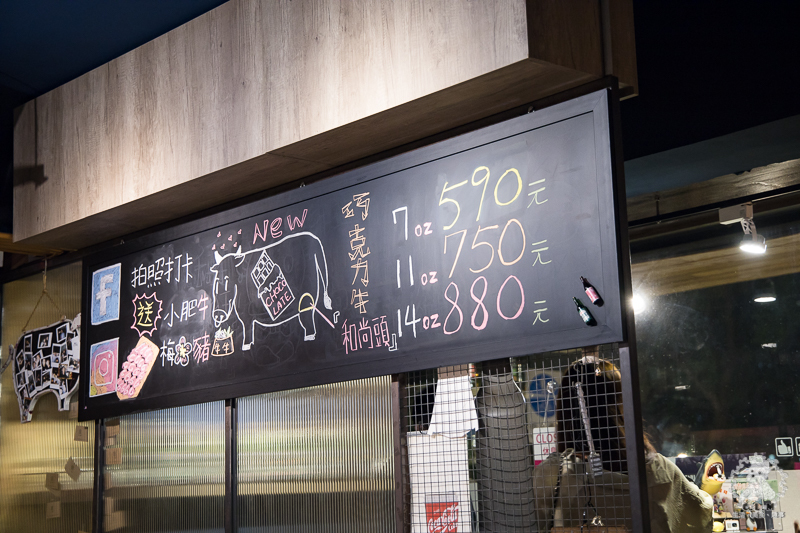 拍照打卡
送 小肥牛
梅花豬
New
CHOCO
LATE
牛牛
巧克力牛
『和尚頭』
7oz 590元
11oz 750元
14oz 880元
CLOS
Coca-Cola